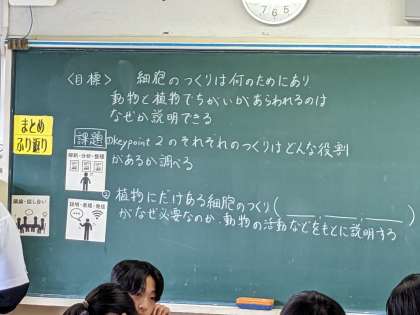 7 6 5
〈目標〉 細胞のつくりは何のためにあり
動物と植物でちがいがあらわれるのは
なぜか説明できる
まとめ
ふり返り
課題 ①keypoint 2のそれぞれのつくりはどんな役割
があるか調べる
解釈・分析・整理
② 植物にだけある細胞のつくり(___.___.___)
がなぜ必要なのか、動物の活動などをもとに説明する
議論・話し合い
説明・表現・発信